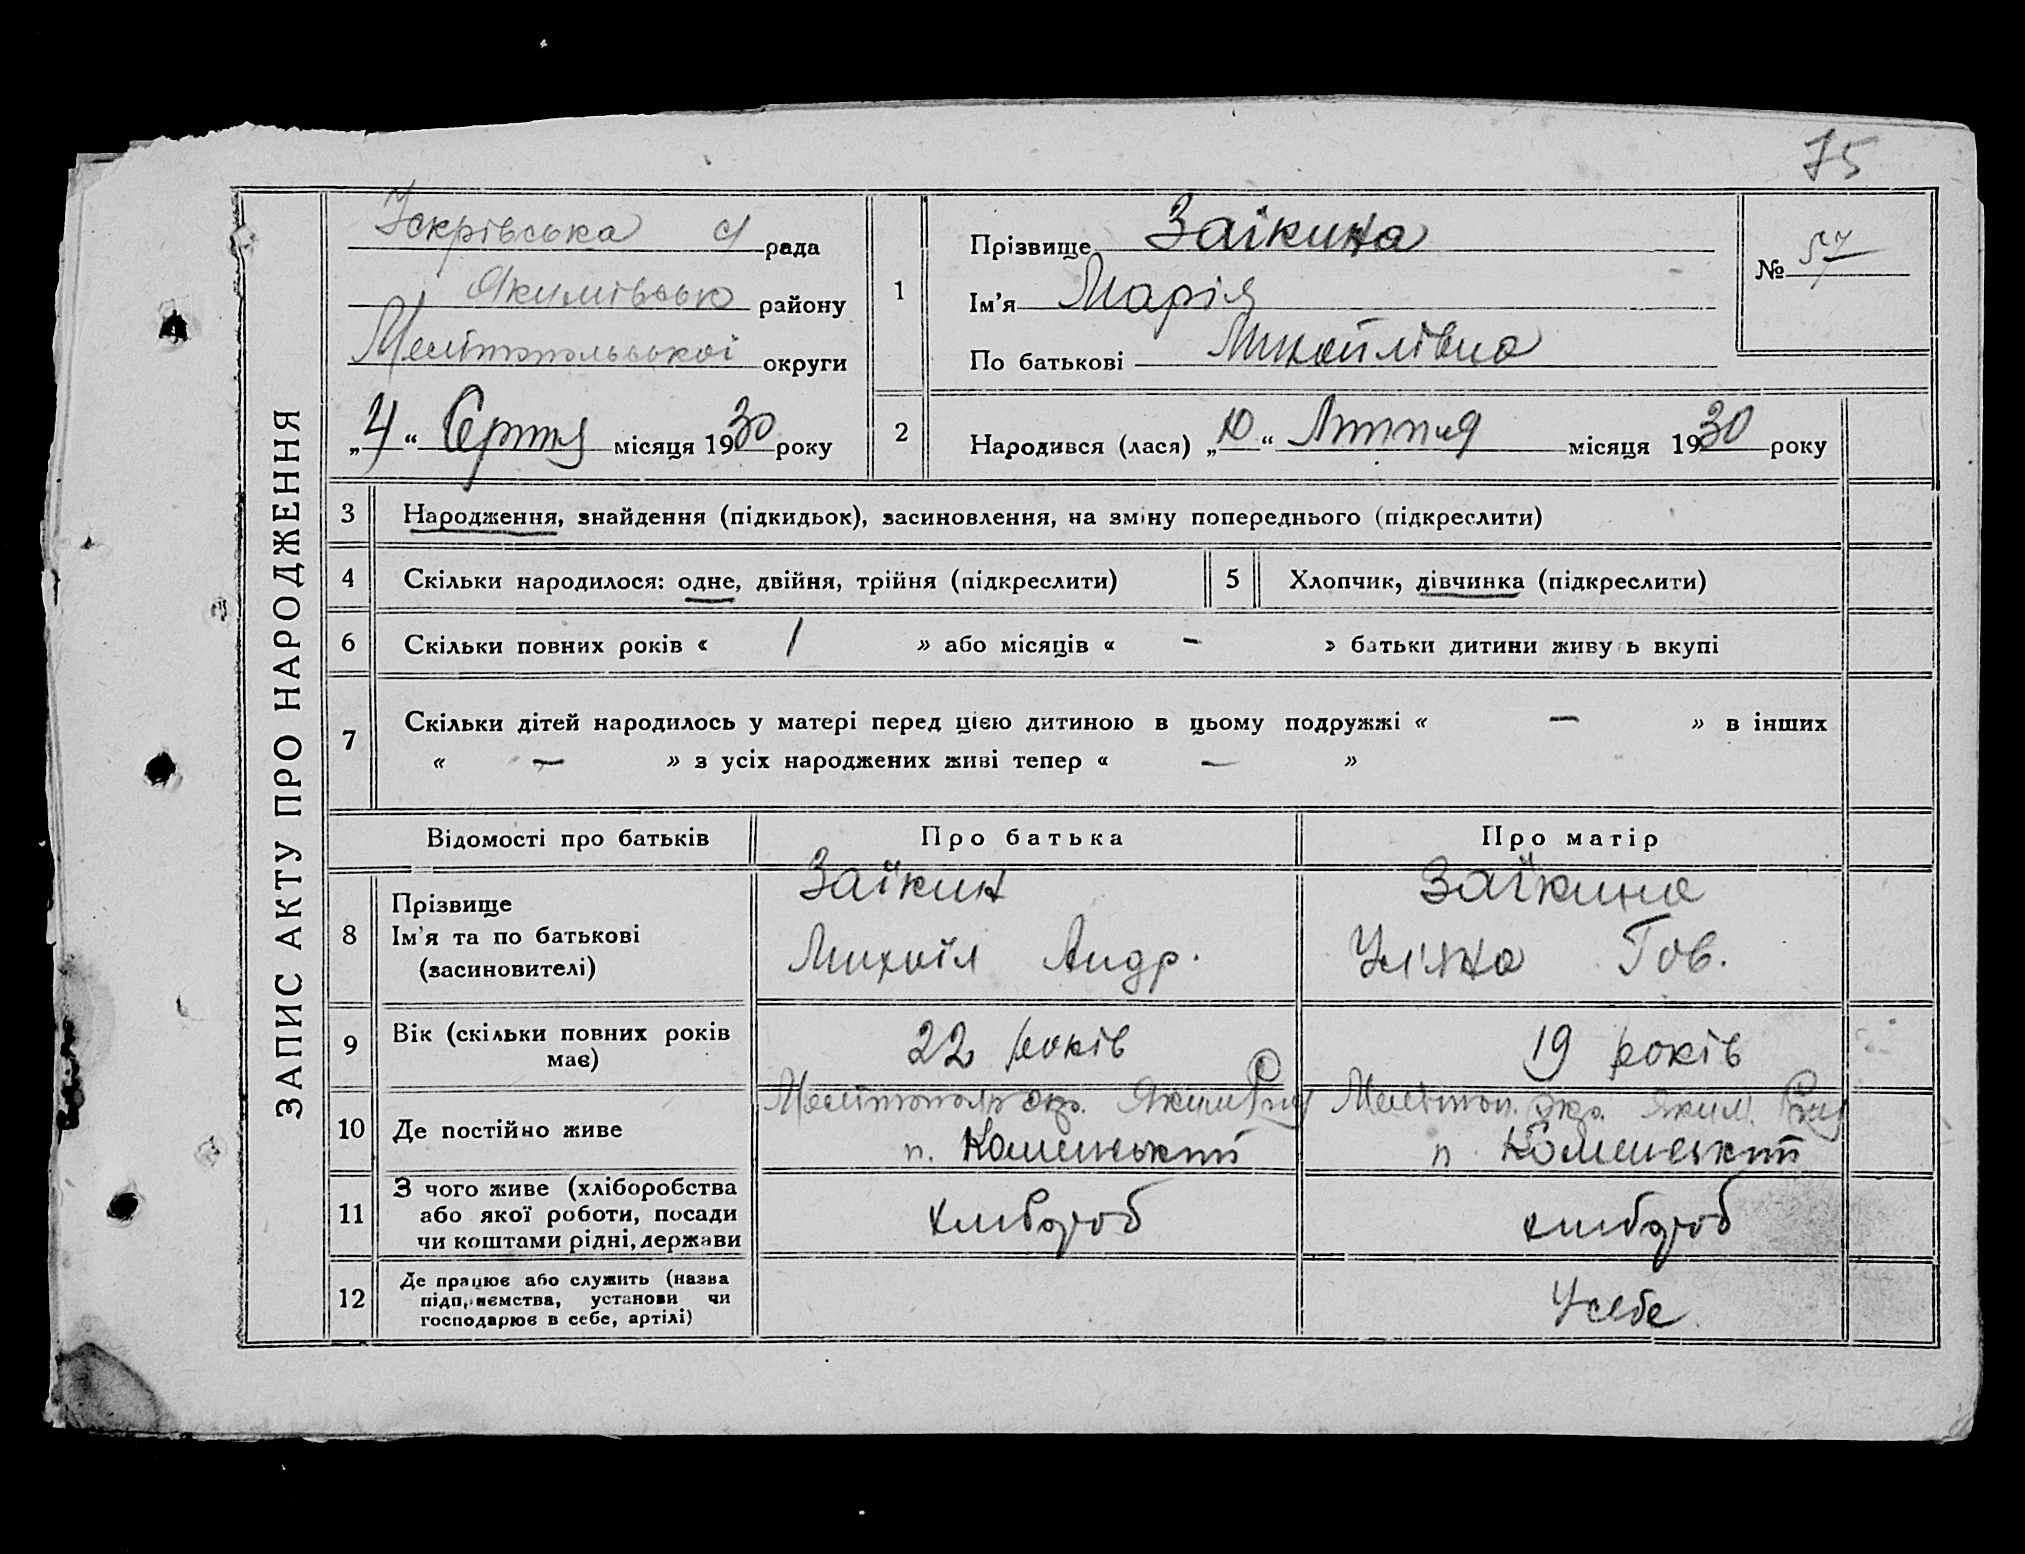 75
ЗАПИС АКТУ ПРО НАРОДЖЕННЯ
Іскрівська с/рада
Якимівсько району
Мелітопольської округи
„4“ Серпня місяця 1930 року
1
Прізвище Заікина
Ім'я Марія
По батькові Михайлівна
№ 57
2
Народився (лася) „10“ Липня місяця 1930 року
3 Народження, знайдення (підкидьок), засиновлення, на зміну попереднього (підкреслити)
4 Скільки народилося: одне, двійня, трійня (підкреслити)
5 Хлопчик, дівчинка (підкреслити)
6 Скільки повних років « 1 » або місяців « - » батьки дитини живу ь вкупі
7 Скільки дітей народилось у матері перед цією дитиною в цьому подружжі « — » в інших
« — » з усіх народжених живі тепер « — »
Відомості про батьків Про батька Про матір
8 Прізвище
Ім'я та по батькові
(засиновителі)
Заїкин
Михаіл Андр.
Заїкина
Уляна Гов.
9 Вік (скільки повних років
має)
22 років
19 років
10 Де постійно живе
Мелітополь окр. Яким Р-ну
п. Каменський
Мелітоп. окр. Яким. Р-ну
п Каменський
11 З чого живе (хліборобства
або якої роботи, посади
чи коштами рідні, держави
хлібороб
хлібороб
12 Де працює або служить (назва
підприємства, установи чи
господарює в себе, артілі)
У себе